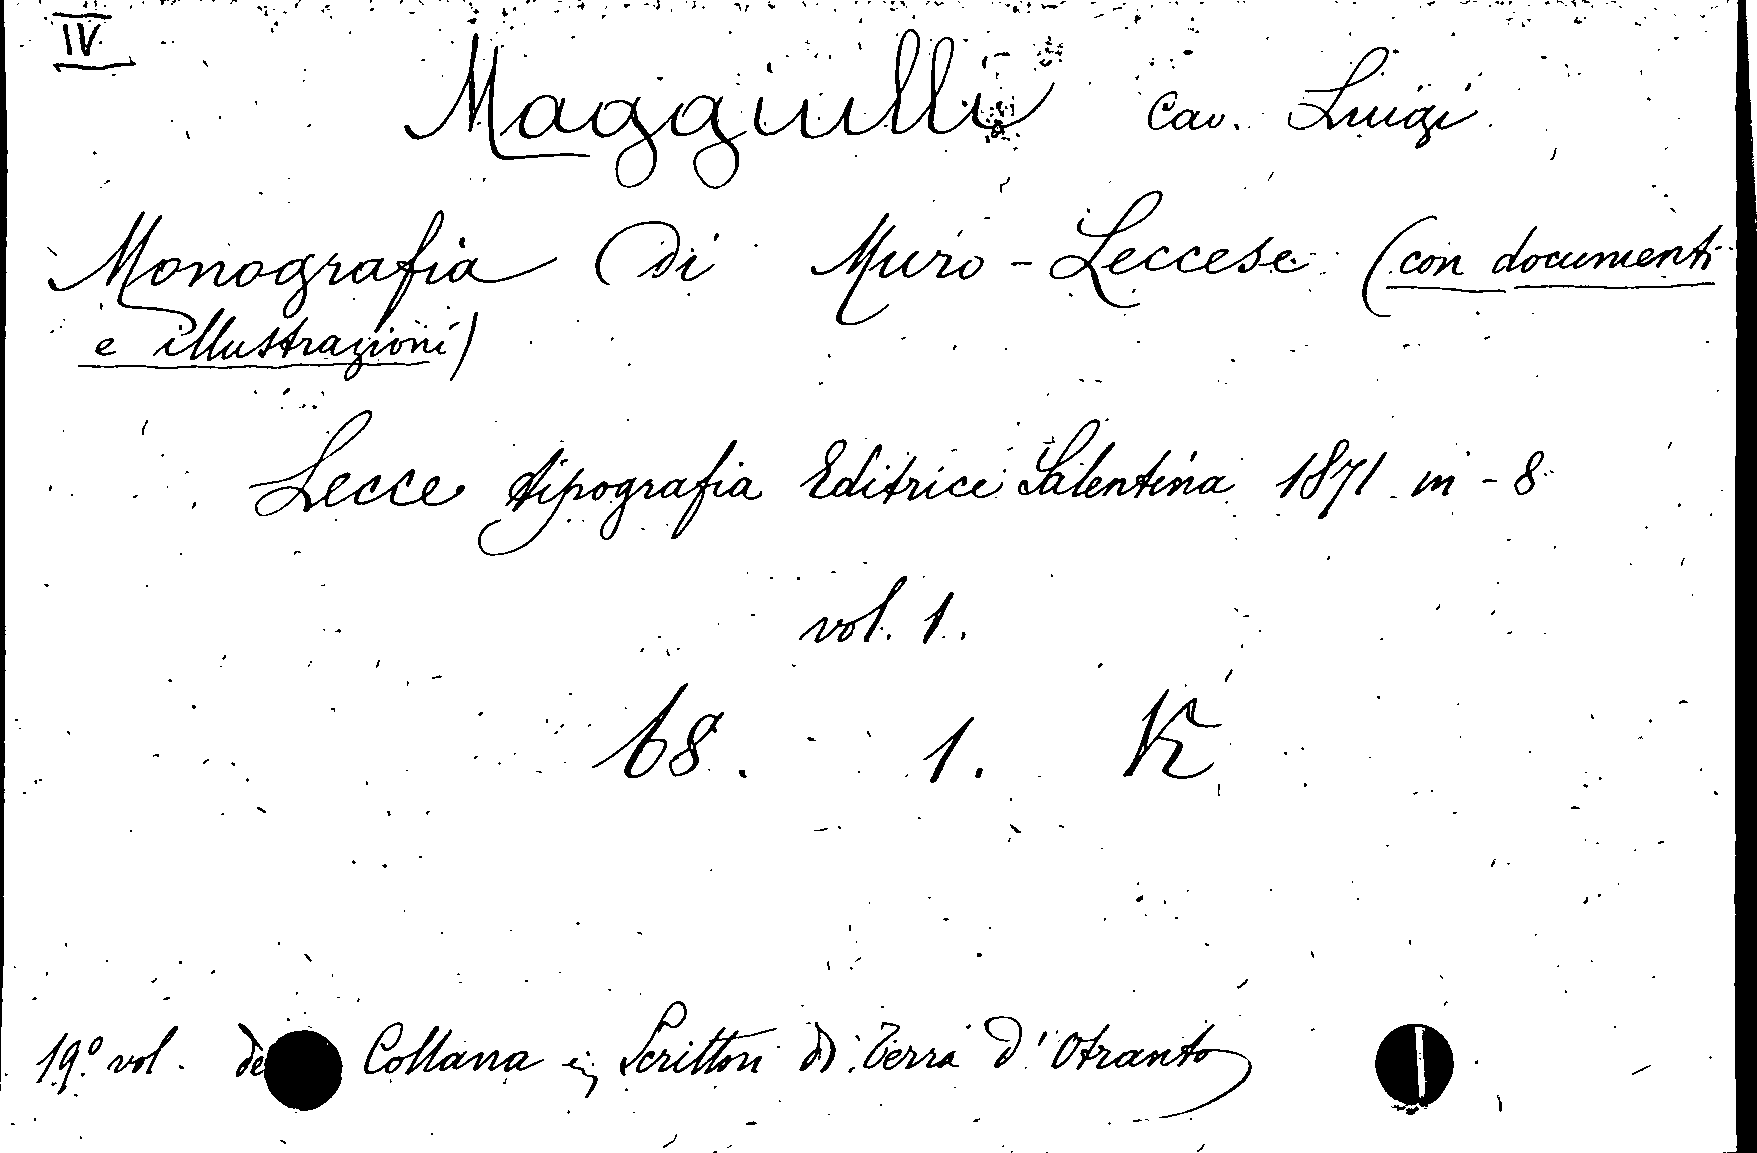 IV
Maggiulli Cav. Luigi
Monografia di Muro-Leccese (con documenti
e illustrazioni)
Lecce tipografia Editrice Salentina 1871 in-8
vol. 1.
68. 1. K
19º vol. Collana Scrittori di Terra d'Otranto